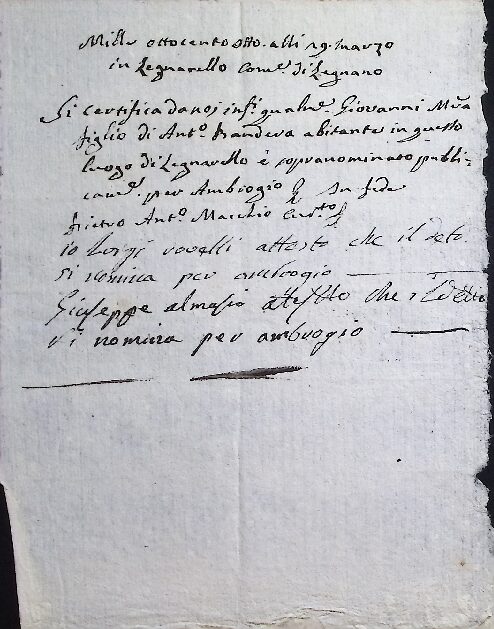 Mille ottocento otto. alli 19. marzo
in Legnarello Com.e di Legnano
Si certifica da noi inf.i qualm.e Giovanni M.a
figlio di Ant.o abitante in questo
luogo di Legnarello è sopranominato publi-
cam.e per Ambrogio In fede
Pietro Ant.o Macchio
io Luigi rovelli attesto che il deto.
si nomina per ambrogio
Giuseppe almasio attesto che il detto
si nomina per ambrogio